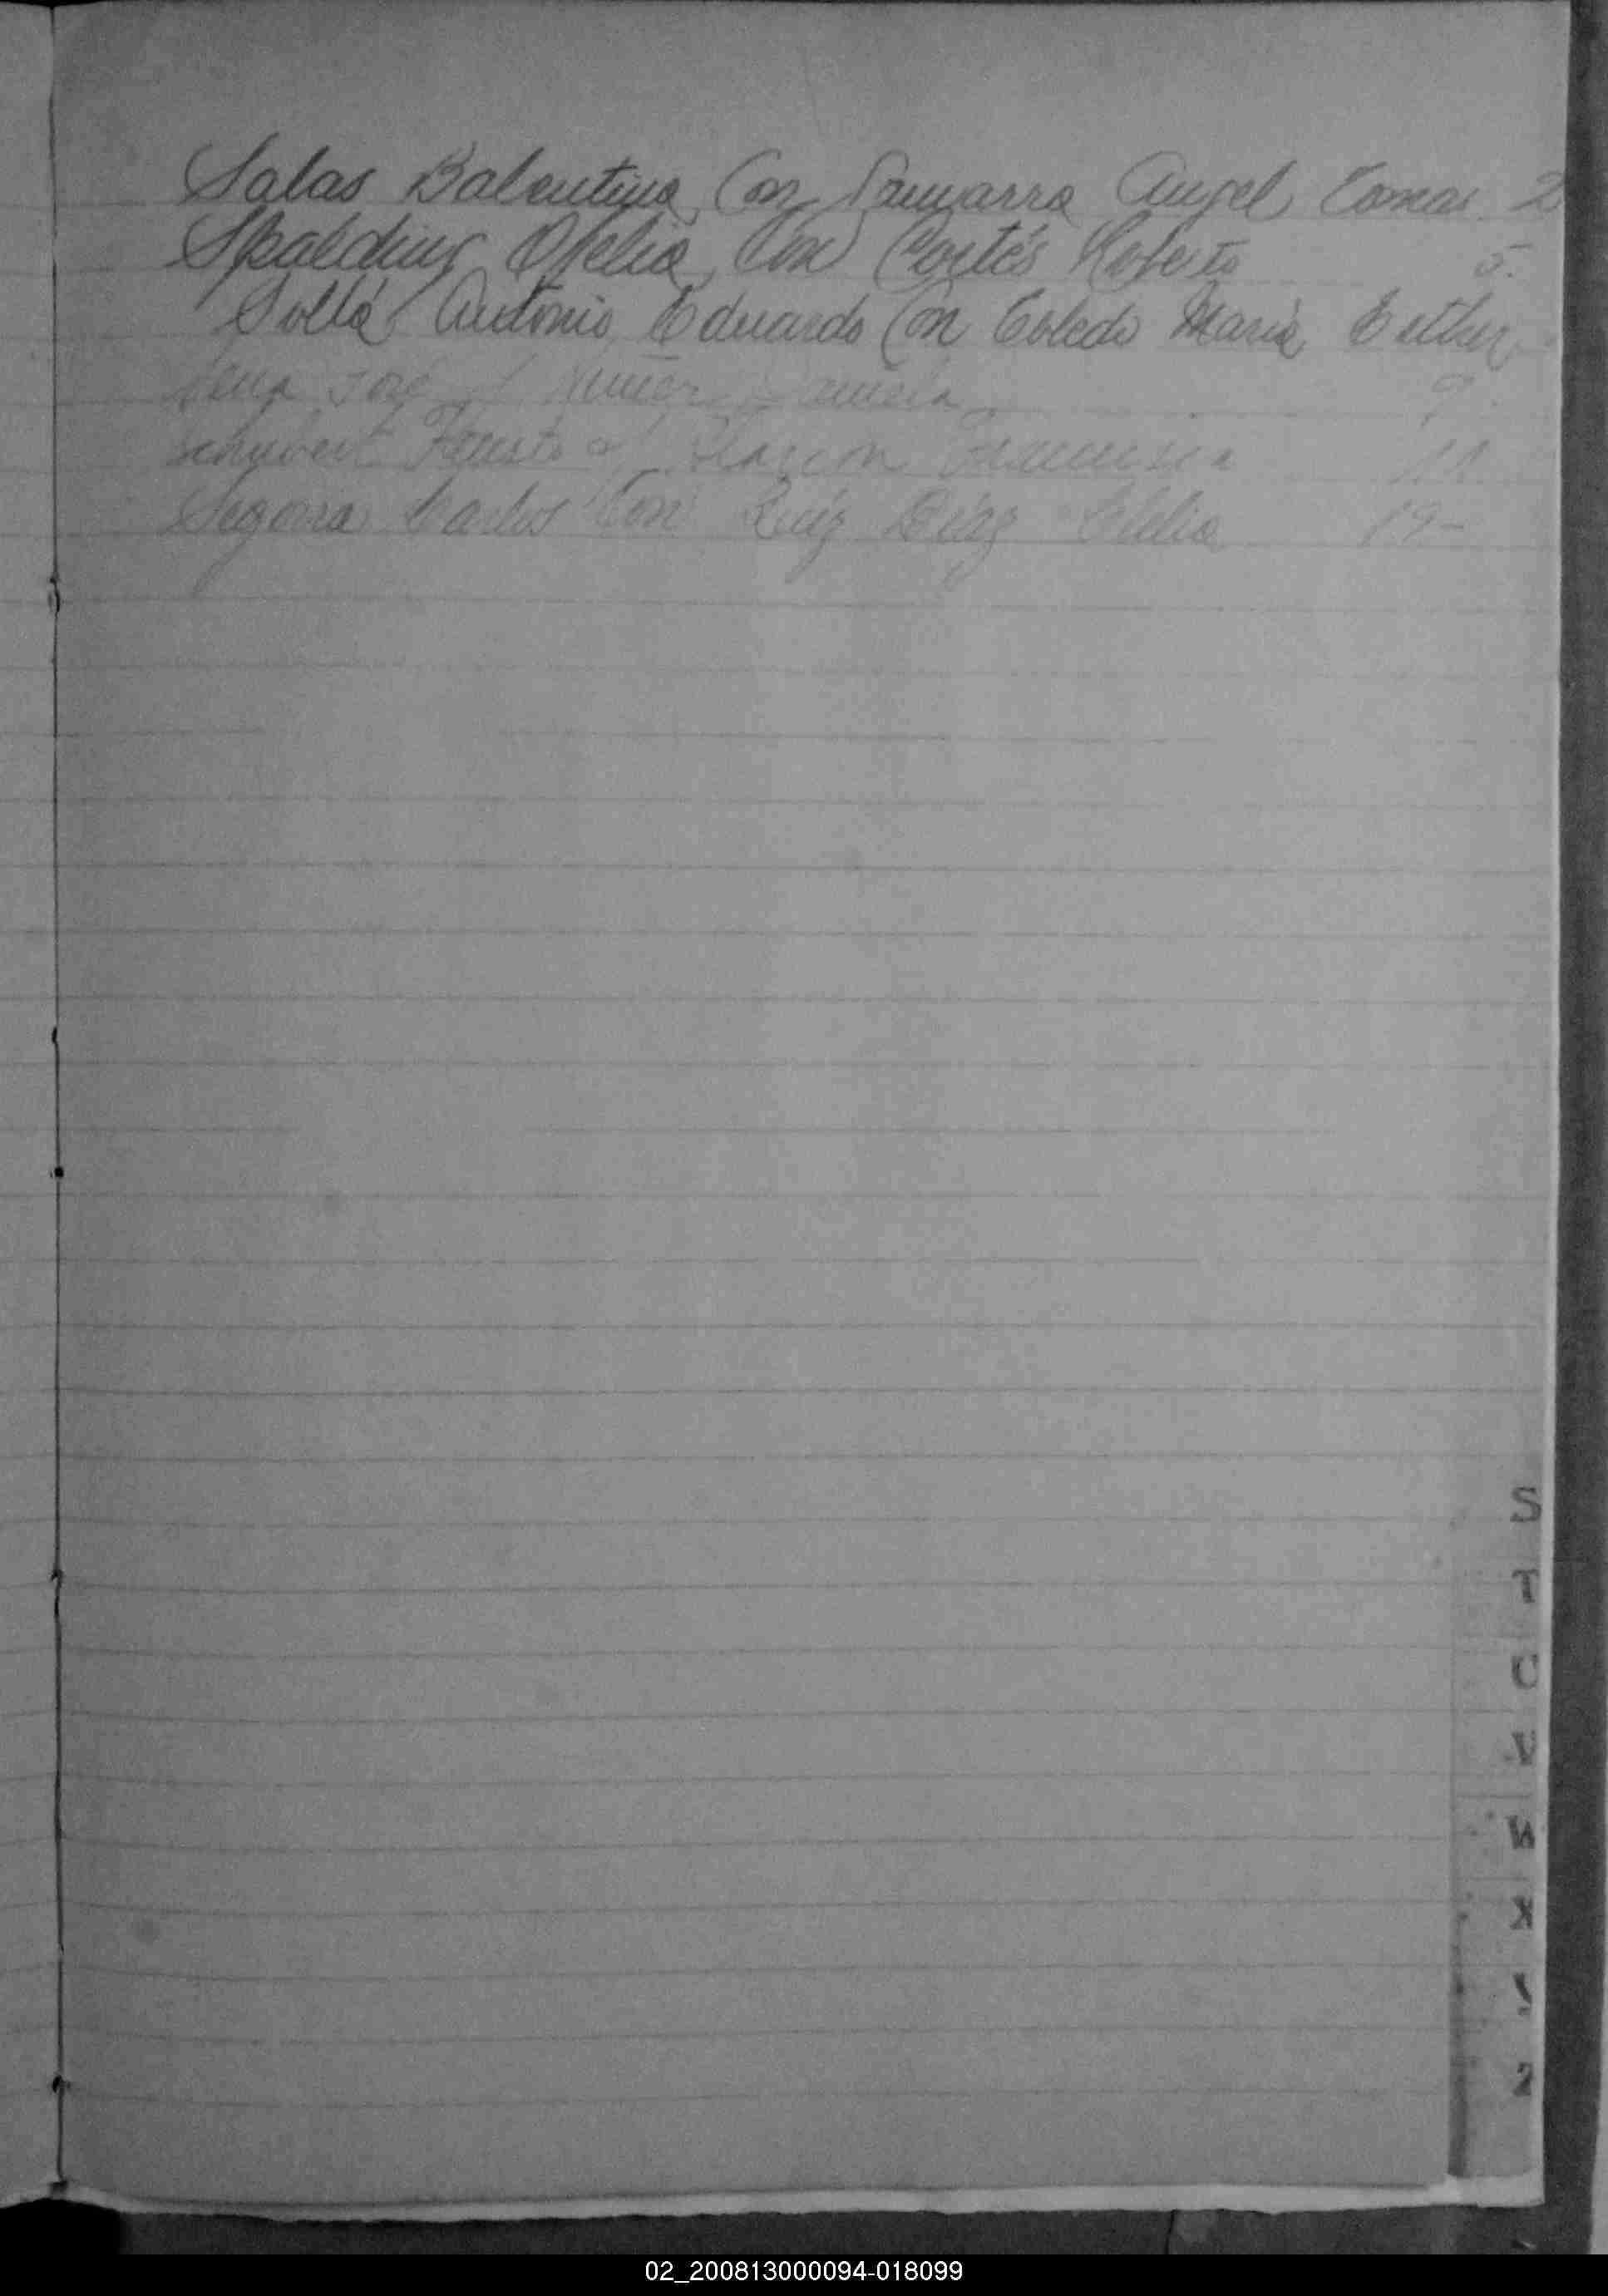 Salas Balentina Con Samarra Angel Tomas 2
Spalding Ofelia Con Cortés Roberto 5.
Sollá Antonio Eduardo Con Toledo Maria Esther
José
Schubert Fausto c/ Francisca 11
Segovia Carlos Con Ruíz Díaz Clelia 19-
S
T
U
V
W
X
Z
02_200813000094-018099